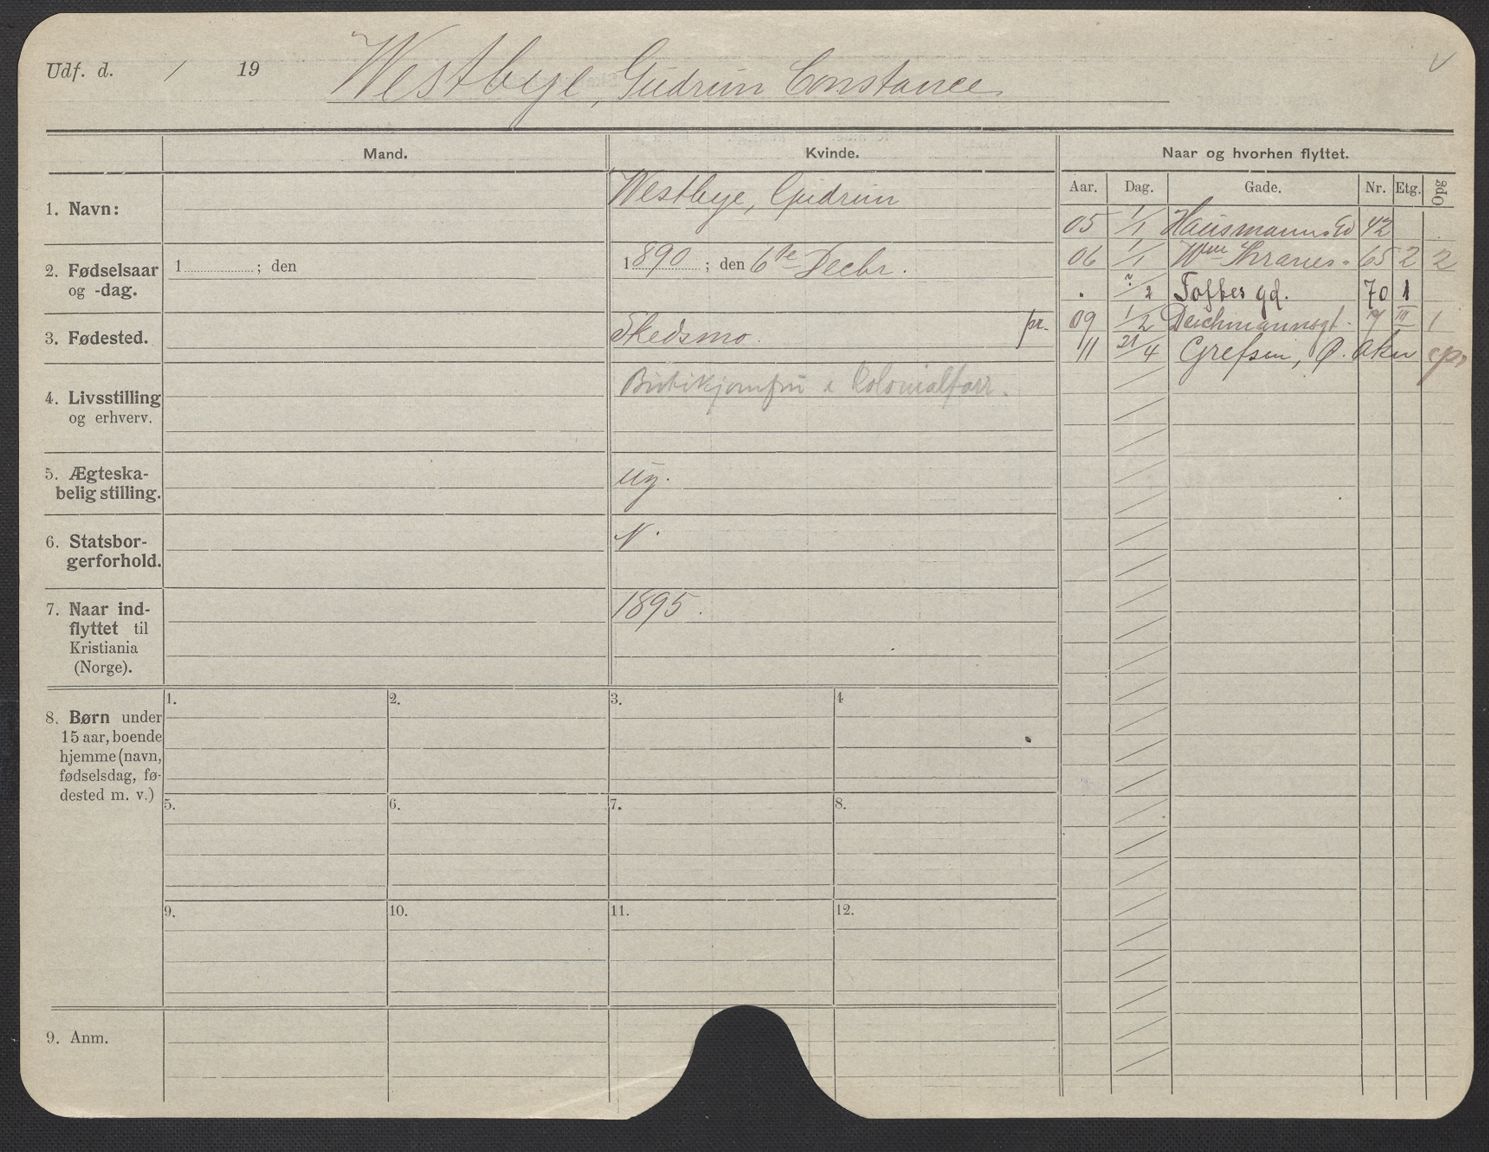 Udf. d. / 19 Westbye, Gudrun Constance
Mand. Kvinde. Naar og hvorhen flyttet.
Aar. Dag. Gade. Nr. Etg. Opg
1. Navn: Westbye, Gudrun
2. Fødselsaar
og -dag.
1 ; den
1890 ; den 6te Decbr.
3. Fødested. Skedsmo. pr.
4. Livsstilling
og erhverv.
Butikjomfru i Kolonialforr.
5. Ægteska-
belig stilling.
ug.
6. Statsbor-
gerforhold.
N.
7. Naar ind-
flyttet til
Kristiania
(Norge).
1895.
05 1/1 Hausmannsgd 42
06 1/1 Wm Thranes " 65 2 2
" ?/2 Toftes gd. 70 1
09 1/2 Deichmannsgt. III 1
11 21/4 Grefsen, Ø. Aker
8. Børn under
15 aar, boende
hjemme (navn,
fødselsdag, fø-
dested m. v.)
1. 2. 3. 4
5. 6. 7. 8.
9. 10. 11. 12.
9. Anm.